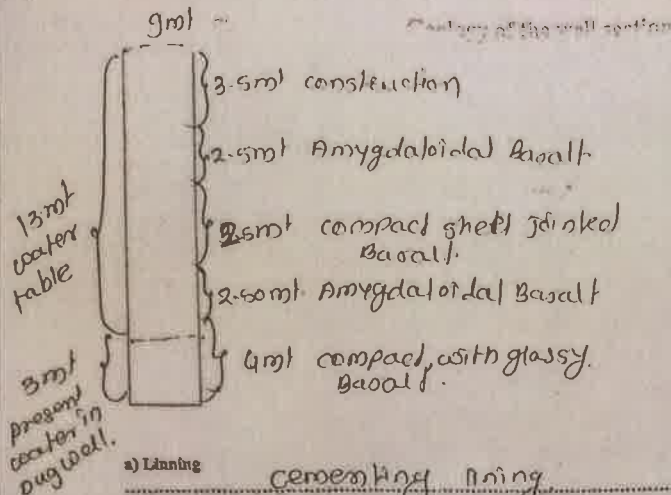 9mt
Geology of the well section
3.5mt construction
2.5mt Amygdaloidal Basalt
2.5mt compact sheet jointed
Basalt.
2.50mt Amygdaloidal Basalt
4mt compact, with glassy.
Basalt.
13mt
water
table
3mt
present
water in
Dug well.
a) Linning
cementing lining